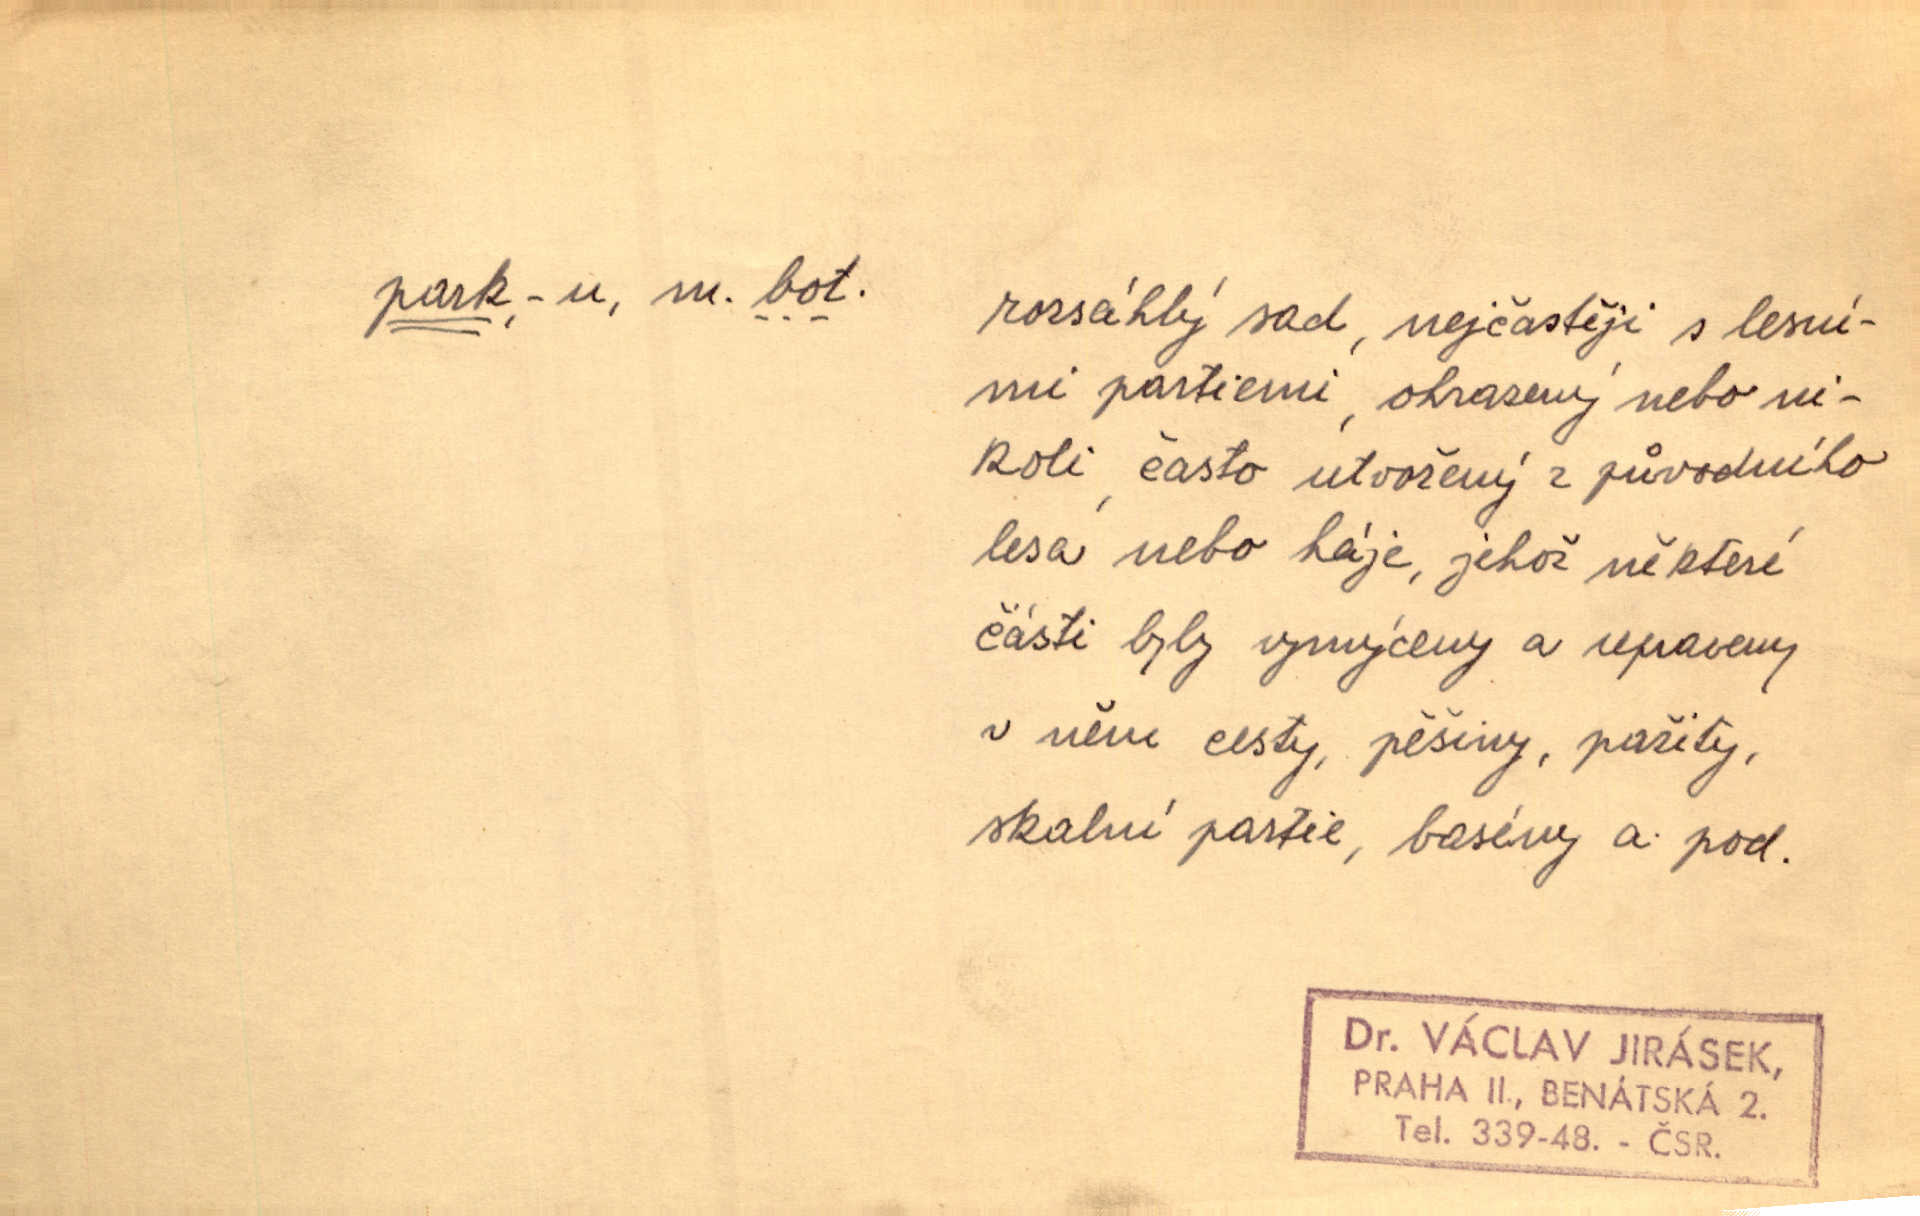 park, -u, m. bot.
rozsáhlý sad, nejčastěji s lesní-
mi partiemi, ohrazený nebo ni-
koli, často utvořený z původního
lesa nebo háje, jehož některé
části byly vymýceny a upraveny
v něm cesty, pěšiny, pažity,
skalní partie, basény a pod.
Dr. VÁCLAV JIRÁSEK,
PRAHA II., BENÁTSKÁ 2.
Tel. 339-48. - ČSR.